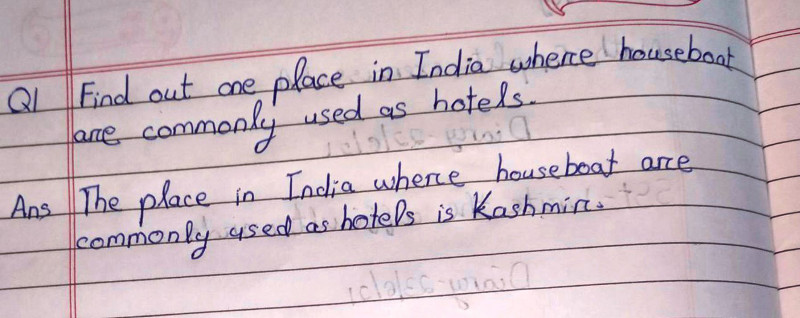 Q1 Find out one place in India where houseboat
are commonly used as hotels.
Ans The place in India where houseboat are
commonly used as hotels is Kashmir.